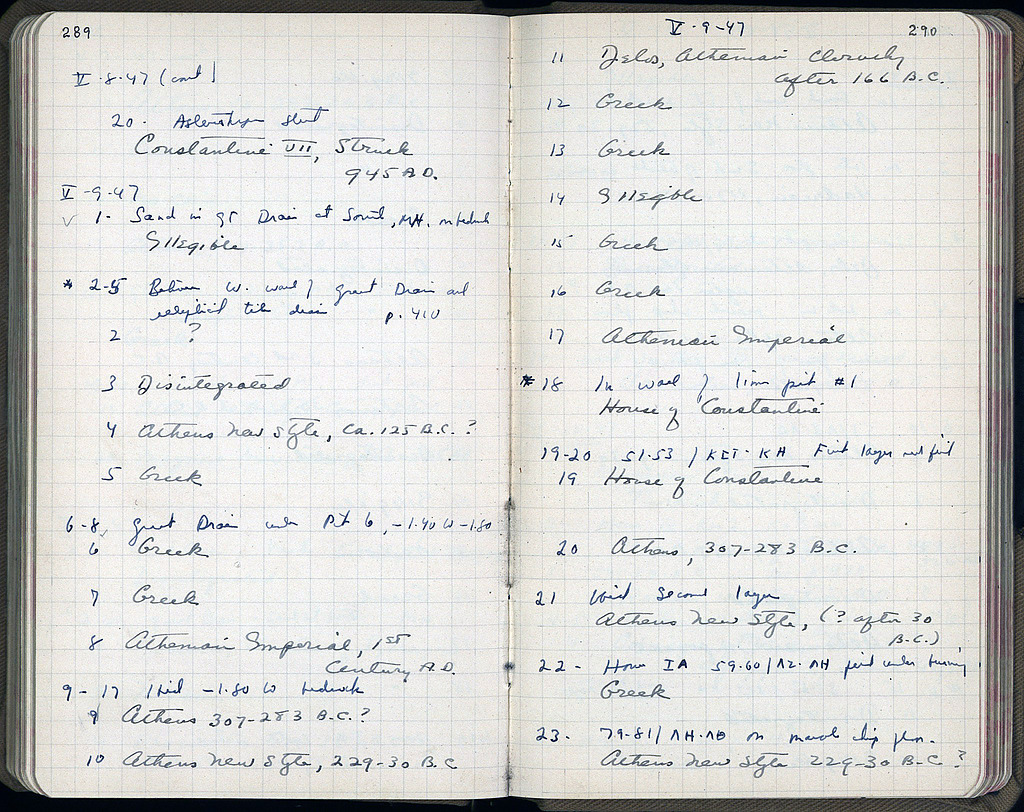 289
V·8·47 (cont)
20. Asklepieion
Constantine VII, Struck
945 A.D.
V-9-47
1- Sand in gt Drain at South,
Illegible
* 2-5 Between W. wall of great Drain and
tile drain p. 410
2 ?
3 Disintegrated
4 Athens New Style, Ca. 125 B.C. ?
5 Greek
6-8 Great Drain under Pit 6, -1.40 to -1.80
6 Greek
7 Greek
8 Athenian Imperial, 1st
Century A.D.
9-17 Ibid -1.80 to bedrock
9 Athens 307-283 B.C.?
10 Athens New Style, 229-30 B.C
V·9-47
290
11 Delos, Athenian Cleruchy
after 166 B.C.
12 Greek
13 Greek
14 Illegible
15 Greek
16 Greek
17 Athenian Imperial
* 18 In wall of lime pit #1
House of Constantine
19-20 51-53 / ΚΣΤ-ΚΗ First layer
19 House of Constantine
20 Athens, 307-283 B.C.
21 Ibid second layer
Athens New Style, (? after 30
B.C.)
22- House IA 59-60/ΛΖ-ΛΗ under
Greek
23. 79-81/ΛΗ-ΛΘ on marble chip floor.
Athens New Style 229-30 B.C ?